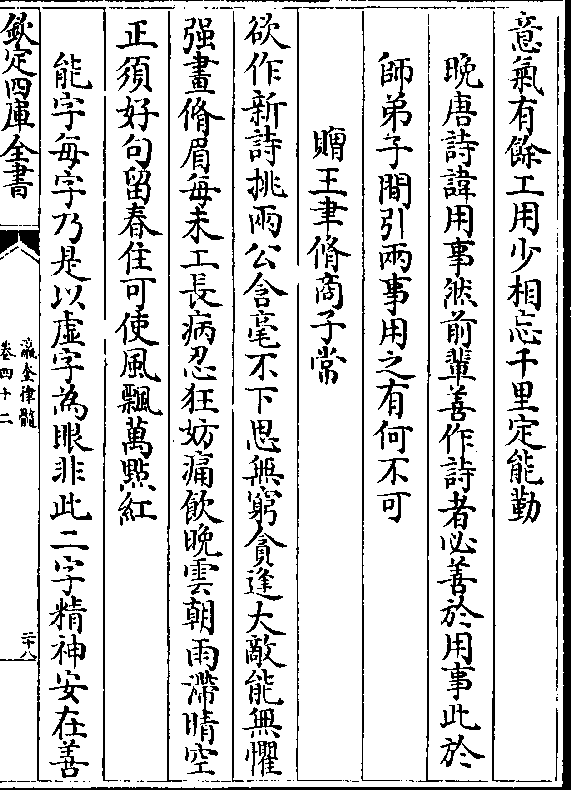 意氣有餘工用少相忘千里定能勤
晚唐詩諱用事然前輩善作詩者必善於用事此於
師弟子間引兩事用之有何不可
贈王聿脩商子常
欲作新詩挑兩公含毫不下思無窮貪逢大敵能無懼
强畫脩眉每未工長病忍狂妨痛飲晚雲朝雨滯晴空
正須好句留春住可使風飄萬點紅
能字每字乃是以虛字為眼非此二字精神安在善
欽定四庫全書
瀛奎律髓
卷四十二
二十八